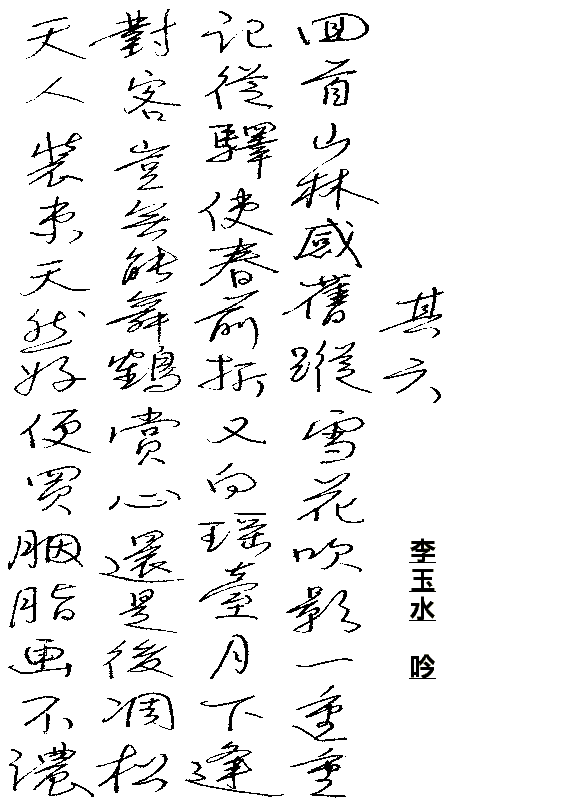 其六
李玉水 吟
回首山林感舊蹤雪花吹影一重重
記從驛使春前折又向瑤臺月下逢
對客豈無能舞鶴賞心還是後凋松
天人裝束天然好便買胭脂画不濃